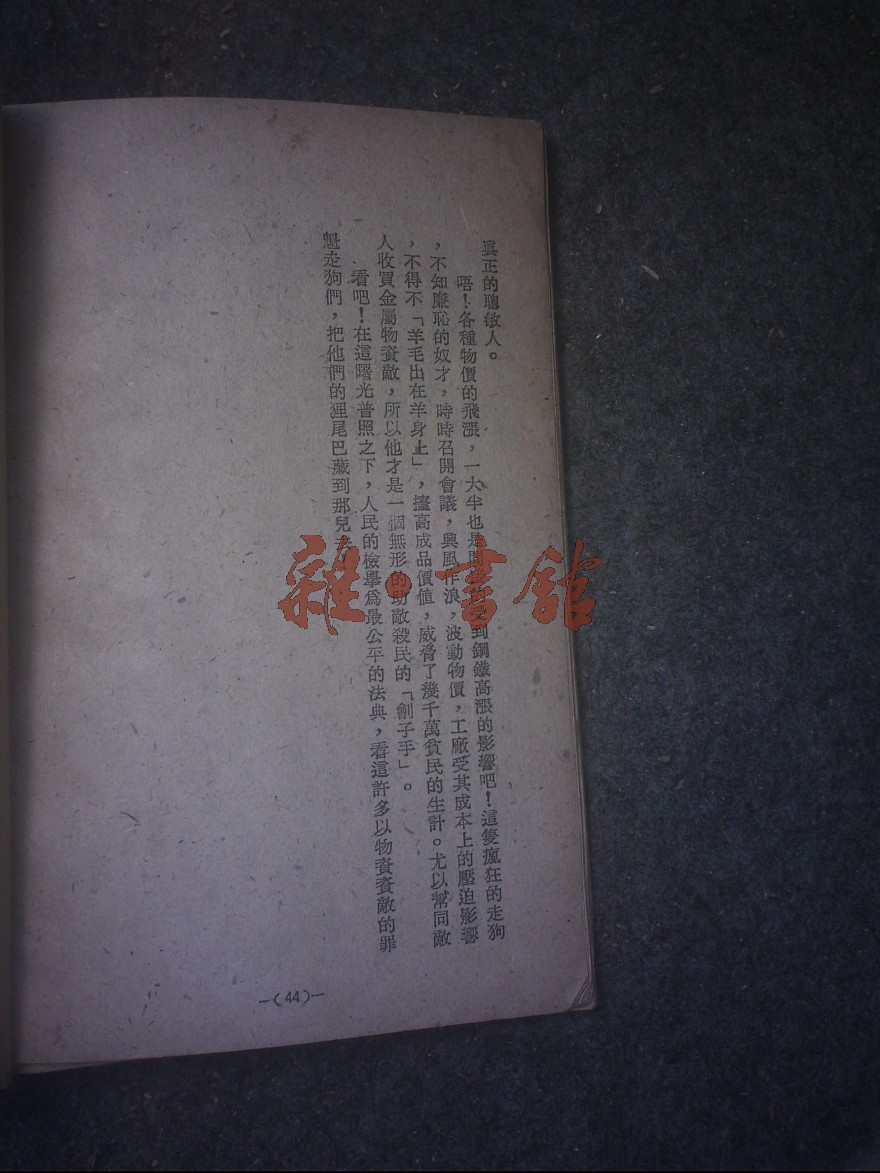 眞正的聰敏人。
唔！各種物價的飛漲，一大半也是到鋼鐵高漲的影響吧！這隻瘋狂的走狗
，不知廉恥的奴才，時時召開會議，興風作浪，波動物價，工廠受其成本上的壓迫影響
，不得不「羊毛出在羊身上」，擡高成品價値，威脅了幾千萬貧民的生計。尤以幫同敵
人收買金屬物資敵，所以他才是一個無形的助敵殺民的「劊子手」。
看吧！在這曙光普照之下，人民的檢舉爲最公平的法典，看這許多以物資資敵的罪
魁走狗們，把他們的狸尾巴藏到那兒去
—(44)—
雜·書館